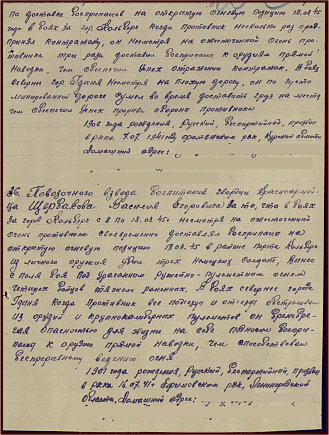 По доставке Боеприпасов на открытую огневую позицию 18.03.45
в боях за гор. Кольберг когда противник несколько раз пред-
принял контратаку, он несмотря на ожесточенный огонь про-
тивника три раза доставил боеприпасы к орудиям прямой
Наводки, чем обеспечил успех отражения контратак. В боях
Севернее Гдыня несмотря на плохую дорогу, он по густо
минированной дороге сумел во время доставить груз на место
чем обеспечил успех прорыва обороны противника
1906 года рождения, Русский, Беспартийный, призван
в РККА 7.07.1941г рвк, Курской области
домашний адрес:
36. Повозочного взвода Боепитания гвардии Красноармей-
ца Щербакова Василия Егоровича за то, что в боях
за город Кольберг с 8 по 18.03.45г несмотря на ожесточенный
огонь противника своевременно доставлял боеприпасы на
открытую огневую позицию 17.03.45 в районе порта Кольберг
из личного оружия убил трех немецких солдат, вынес
с поля боя под ураганным ружейно-пулеметным огнем
четырех бойцов тяжело раненных. В боях севернее города
Гдыня когда противник все подходы и отходы обстреливал
из орудий и крупнокалиберных пулеметов он пренебре-
гая опасностью для жизни на себе подносил боепри-
пасы к орудию прямой наводки, чем способствовал
бесперебойному ведению огня
1901 года рождения, Русский, Беспартийный, призван
в РККА 16.07.41г Ефимовским рвк, Ленинградской
области, домашний адрес: